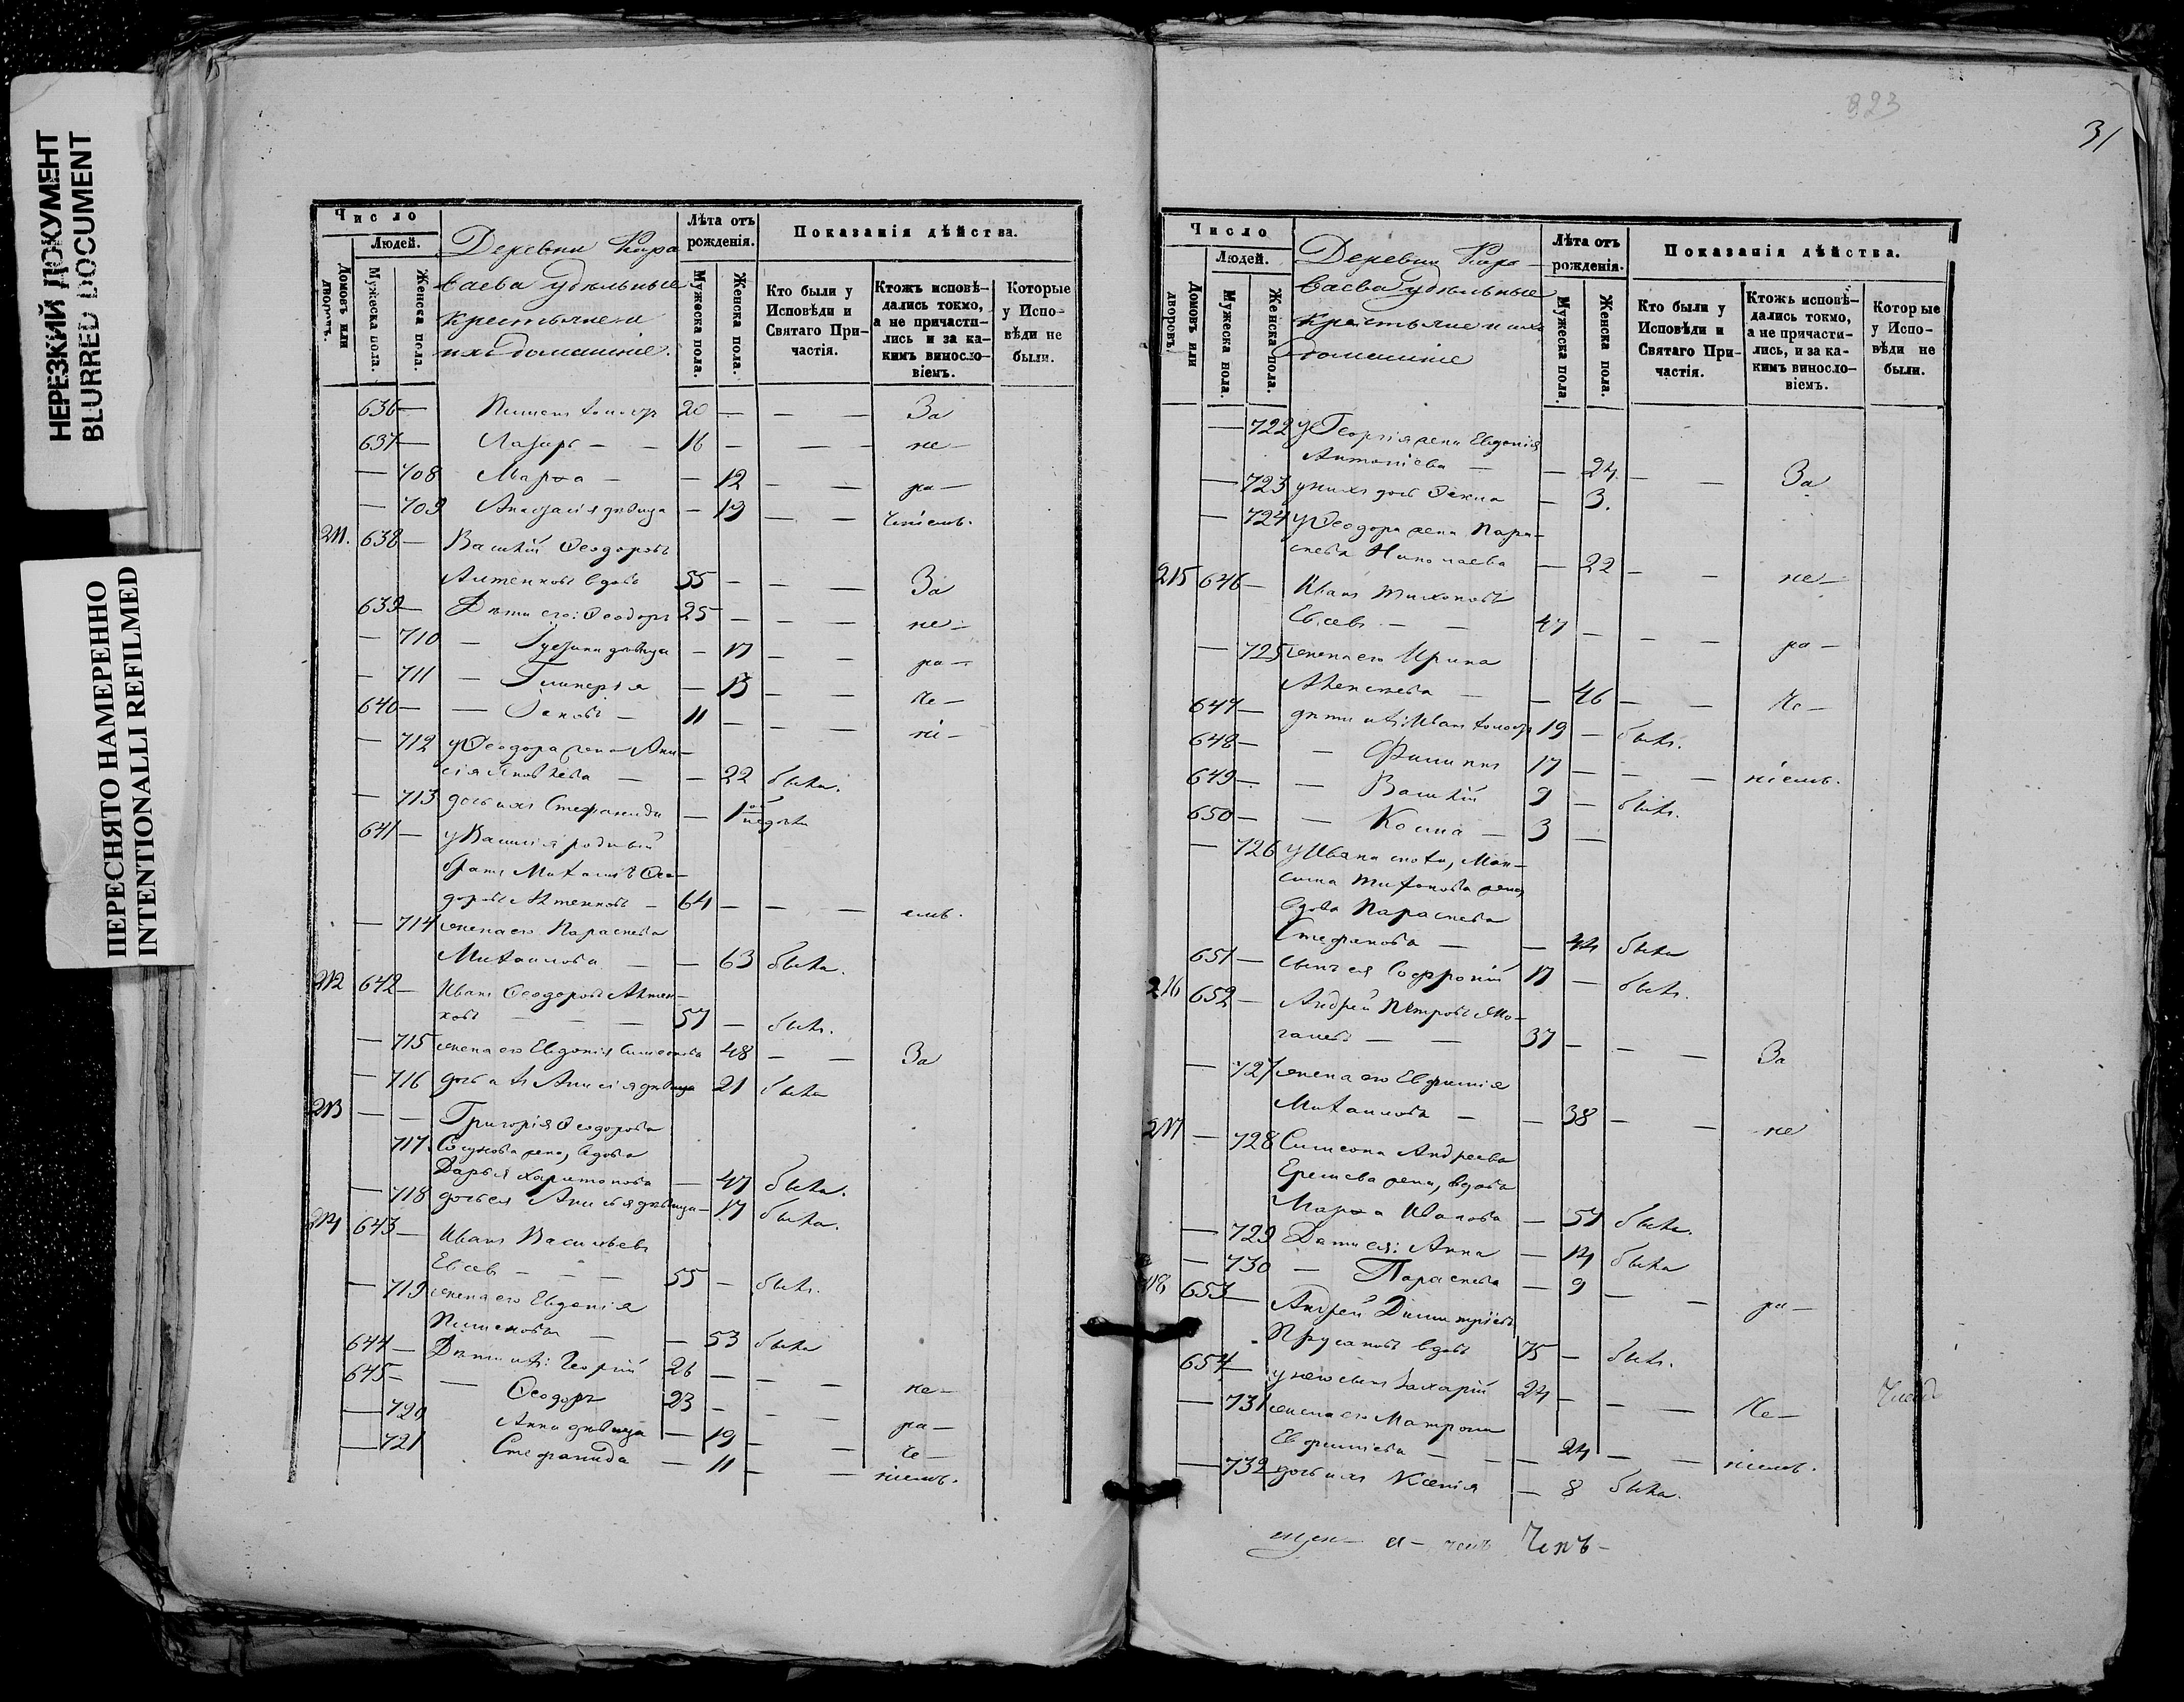 НЕРЕЗКИЙ ДОКУМЕНТ
BLURRED DOCUMENT
ПЕРЕСНЯТО НАМЕРЕННО
INTENTIONALLI REFILMED
Число
Людей.
Домовъ или дворовъ.
Мужеска пола.
Женска пола.
Деревни Кара
ваева удѣльные
крестьяне и
ихъ домашніе.
Лѣта отъ рожденія.
Мужеска пола.
Женска пола.
Показанія дѣйства.
Кто были у Исповѣди и Святаго При-частія.
Ктожъ исповѣ-дались токмо, а не причасти-лись и за ка-кимъ винословіемъ.
Которые у Испо-вѣди не были.
636 — Пименъ холостъ 20 — — — За
637 — Лазарь — — 16 — — — не —
— 708 Марѳа — — 12 — — ра —
— 709 Анастасія дѣвица — 19 — —
211. 638 — Василій Ѳеодоровъ
вдовъ 55 — — — За
639 — Дѣти его: Ѳеодоръ 25 — — — не —
— 710 — дѣвица — 17 — — ра —
— 711 — Гликерія — 13 — — че —
640 — — Іаковъ — 11 — — — ні —
— 712 у Ѳеодора жена Ани-
сія Яковлева — — 22 была.
— 713 дочь ихъ Стефанида — 1
641 — у Василія родный
братъ Михаилъ Ѳео-
доровъ — 64 — — — емъ.
— 714 жена его Параскева
Михаилова — — 63 была.
212 642 — Иванъ Ѳеодоровъ
— — — 57 — былъ.
— 715 жена его Евдокія Симеонова 48 — — За
— 716 дочь ихъ Анисія дѣвица 21 была
213 — — Григорія Ѳеодорова
717 жена, вдова
Дарья Харитонова — 47 была.
— 718 дочь ея Анисья дѣвица — 17 была.
214 643 — Иванъ Васильевъ
Евсевъ — — — 55 — былъ.
— 719 жена его Евдокія
Пименова — — 53 была
644 — Дѣти ихъ: Георгій 26 — — — не —
645 — — Ѳеодоръ 23 — — — ра —
— 720 Анна дѣвица — 19 — — че —
— 721 Стефанида — 11 — — ніемъ.
823
31
Число
Людей.
Домовъ или дворовъ.
Мужеска пола.
Женска пола.
Деревни Кара —
ваева удѣльные
крестьяне и ихъ
домашніе
Лѣта отъ рожденія.
Мужеска пола.
Женска пола.
Показанія дѣйства.
Кто были у Исповѣди и Святаго При-частія.
Ктожъ исповѣ-дались токмо, а не причасти-лись, и за ка-кимъ винословіемъ.
Которые у Испо-вѣди не были.
— 722 у Георгія жена Евдокія
Антоніева — — 24 — — За
— 723 у нихъ дочь — 3.
— 724 у Ѳеодора жена Пара-
скева Николаева — 22 — — не —
215 646 — Иванъ Тихоновъ
Евсевъ — — 47 — — — ра —
— 725 жена его Ирина
Алексѣева — — 46 — — че —
647 — дѣти ихъ: Иванъ холостъ 19 — былъ.
648 — — Филиппъ 17 — — — ніемъ.
649 — — Василій 9 — былъ.
650 — — Косма — 3 —
— 726 у Ивана сноха, Мак-
сима Тихонова жена,
вдова Параскева
Стефанова — — 44 была
651 — сынъ ея Софроній 17 — былъ.
216 652 — Андрей Петровъ Мо-
— — 37 — — — За
— 727 жена его Евфимія
Михаилова — — 38 — — не
217 — 728 Симеона Андреева
Ершева жена, вдова
Марѳа Иванова — 57 была.
— 729 Дѣти ея: Анна — 14 была
— 730 — Параскева — 9 — — ра —
218 653 — Андрей Димитріевъ
Прусаковъ вдовъ 75 — былъ.
654 — у него сынъ Захарій 24 — — — че —
— 731 жена его Матрона
Евфиміева — — — 24 — — ніемъ.
— 732 дочь ихъ Ксенія — 8 была.